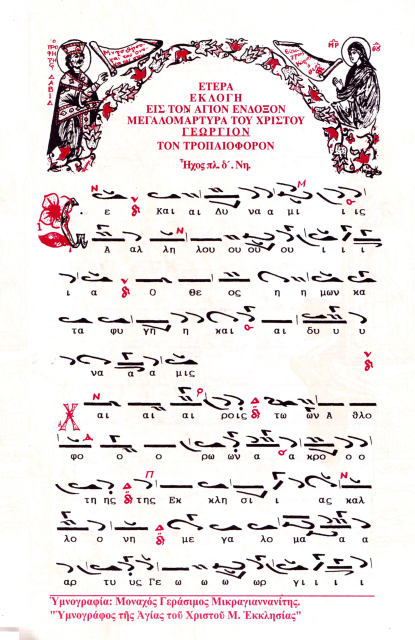 Ο ΠΡΟΦΗΤΗΣ ΔΑΒΙΔ
ΜΡ ΘΥ
ΕΤΕΡΑ
ΕΚΛΟΓΗ
ΕΙΣ ΤΟΝ ΑΓΙΟΝ ΕΝΔΟΞΟΝ
ΜΕΓΑΛΟΜΑΡΤΥΡΑ ΤΟΥ ΧΡΙΣΤΟΥ
ΓΕΩΡΓΙΟΝ
ΤΟΝ ΤΡΟΠΑΙΟΦΟΡΟΝ
Ἦχος πλ. δ΄. Νη.
ε και αι Δυ να α μι ι ις
Α αλ λη λου ου ου ου ι ι ι
ι α Ο θε ος η η μων κα
τα φυ γη η και αι δυ υ υ
να α α μις
Χ αι αι αι ροις τω ων Α θλο
φο ο ο ρω ων α α κρο ο ο
τη ης της Εκ κλη σι ι ας καλ
λο ο νη με γα λο μα α α
αρ τυ υς Γε ω ω ωρ γι ι ι ι
Ὑμνογραφία: Μοναχός Γεράσιμος Μικραγιαννανίτης.
"Ὑμνογράφος τῆς Ἁγίας τοῦ Χριστοῦ Μ. Ἐκκλησίας"